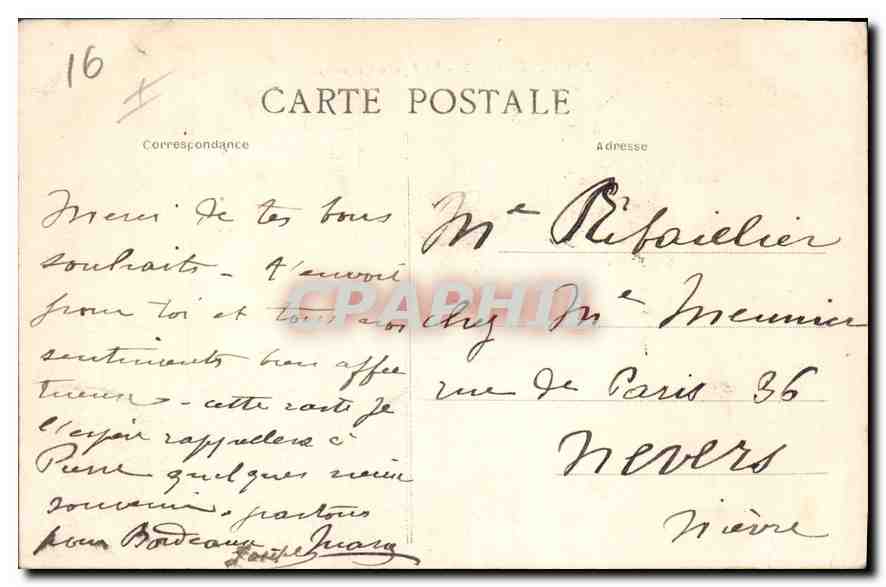 16
CARTE POSTALE
Correspondance
Adresse
Merci de tes bons
souhaits - t'envoie
pour toi et tous nos
sentiments bien affec
tueux - cette carte je
l'espère rappellera à
Pierre quelques vieux
souvenirs. partons
pour Bordeaux
Me Ribaillier
chez Me Meunier
rue de Paris 36
Nevers
Nièvre
CPAPHIL